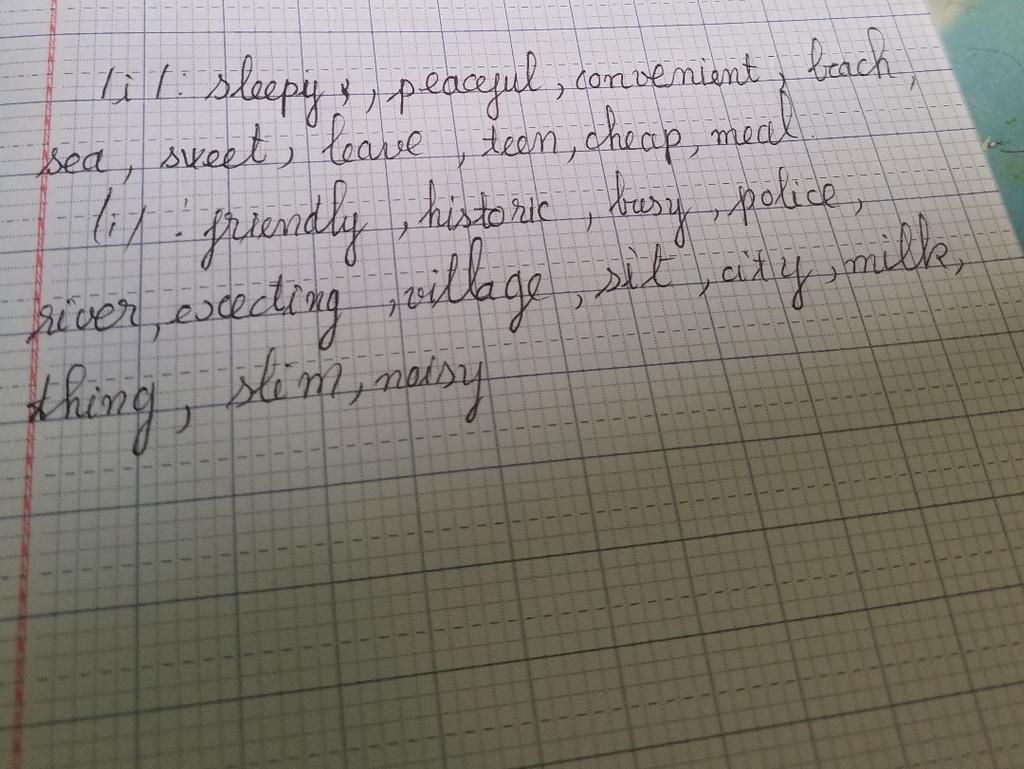 /i/: sleepy, peaceful, convenient, beach,
sea, sweet, leave, teen, cheap, meal.
/i/: friendly, historic, busy, police,
river, execting, village, sit, city, milk,
thing, slim, noisy